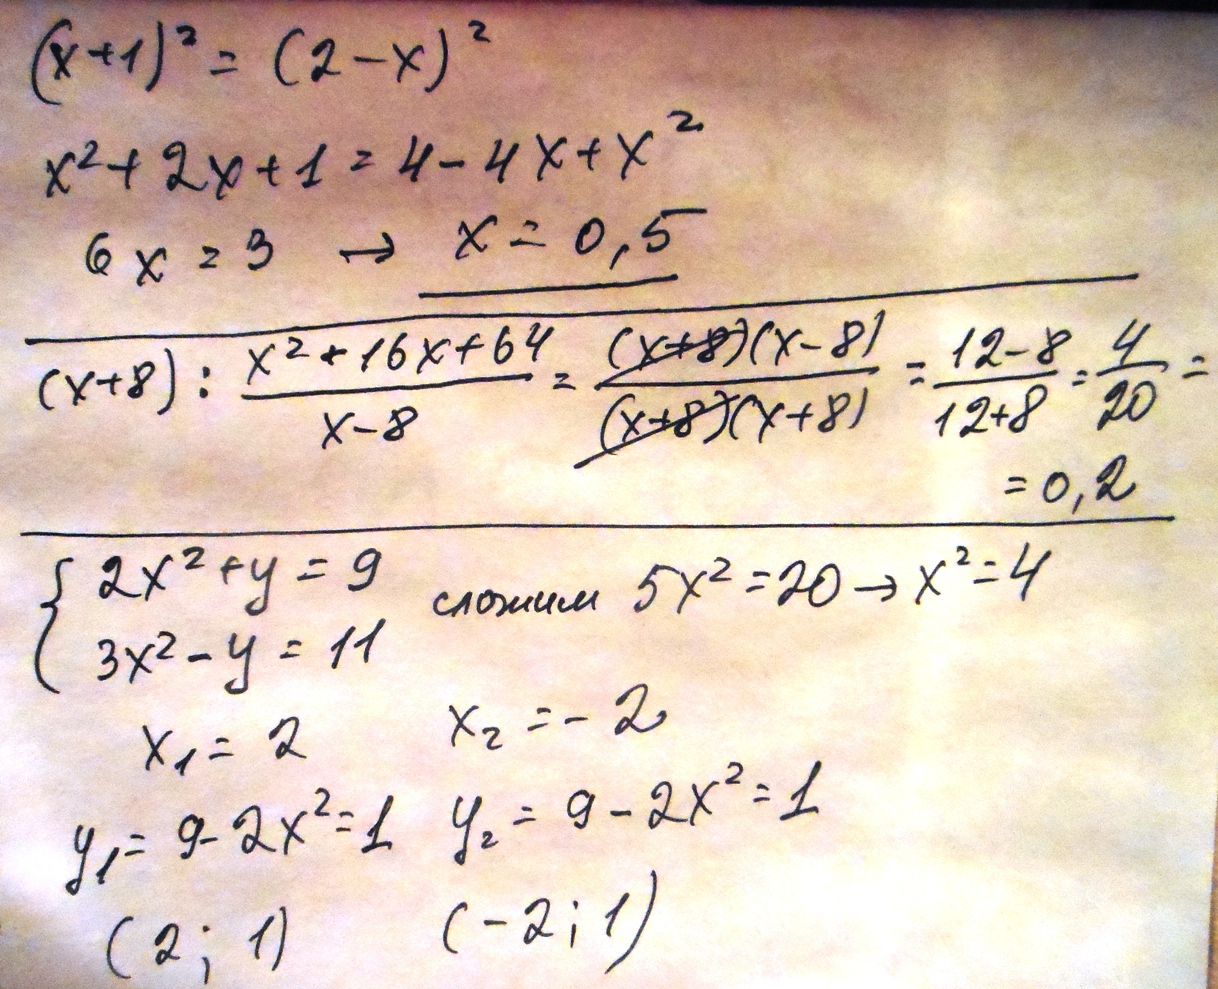 (x+1)² = (2-x)²
x²+2x+1 = 4-4x+x²
6x = 3 → x = 0,5
(x+8) : (x²+16x+64)/(x-8) = ((x+8)(x-8))/((x+8)(x+8)) = (12-8)/(12+8) = 4/20 =
= 0,2
{ 2x²+y = 9
3x²-y = 11 сложим 5x² = 20 → x² = 4
x₁ = 2 x₂ = -2
y₁ = 9-2x² = 1 y₂ = 9-2x² = 1
(2; 1) (-2; 1)